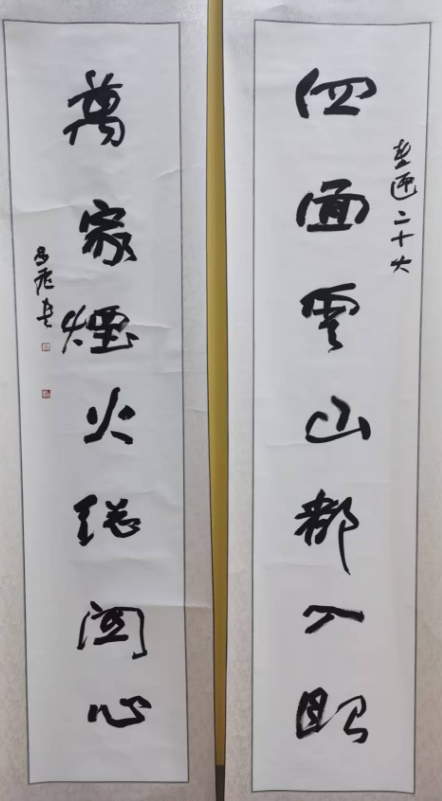 喜迎二十大
四面雲山都入眼
萬家煙火總關心